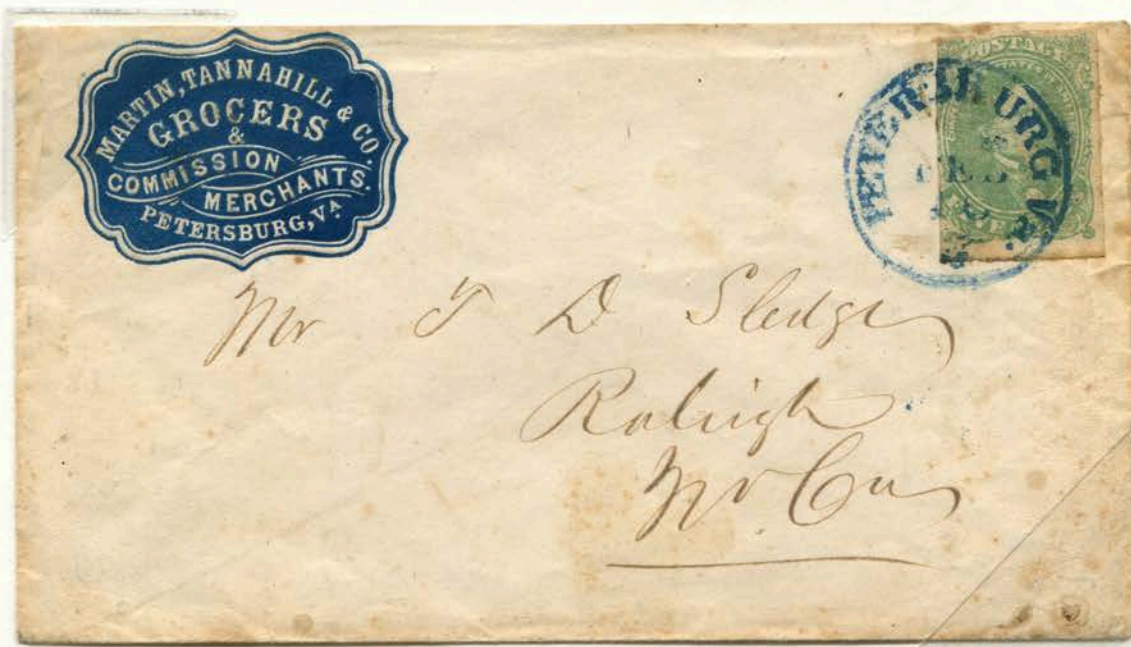 MARTIN, TANNAHILL & CO.
GROCERS
&
COMMISSION
MERCHANTS.
PETERSBURG, VA
POSTAGE
PETERSBURG VA.
Mr T D Sledge
Raleigh
No Ca